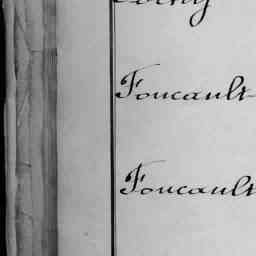 Foucault
Foucault